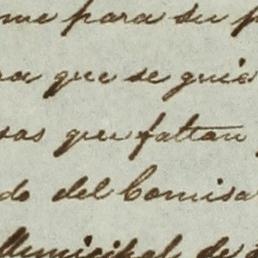 me para su p
ra que se guia
sas que faltan
do del Comisa
Municipal de